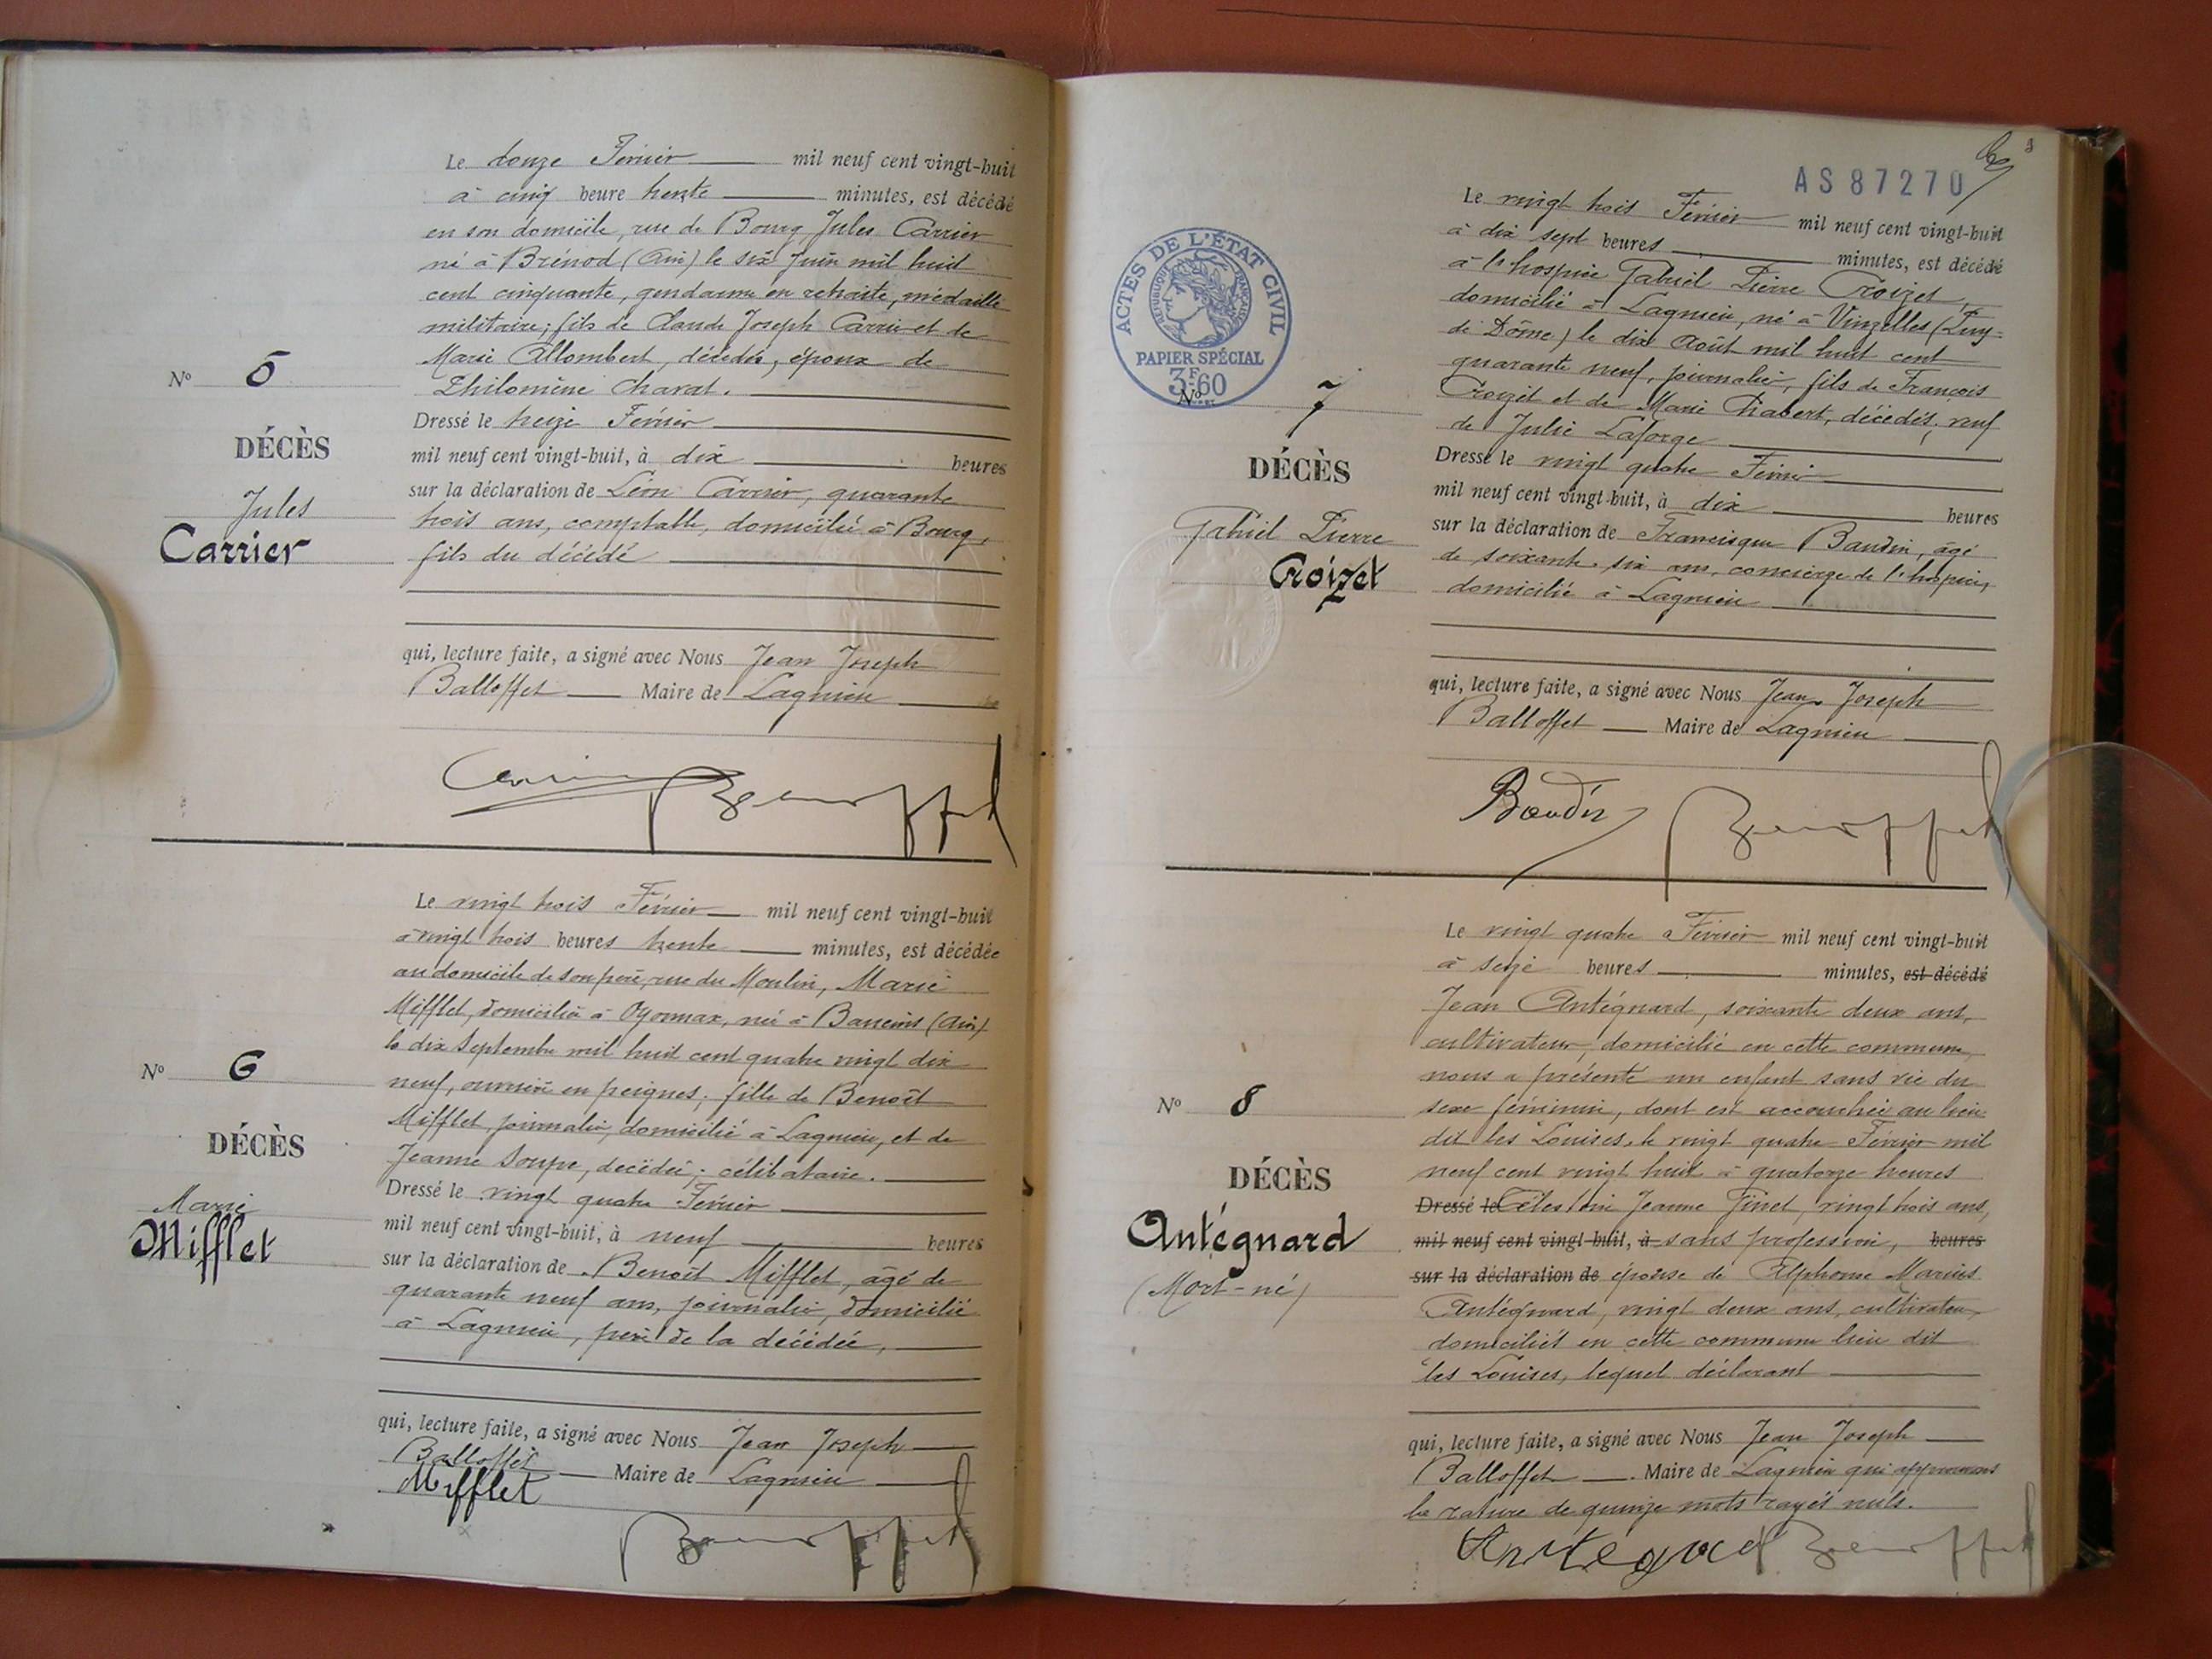 Le douze Février mil neuf cent vingt-huit
à cinq heure trente minutes, est décédé
en son domicile, rue de Bourg, Jules Carrier
né à Brénod (Ain) le six Juin mil huit
cent cinquante, gendarme en retraite, médaille
militaire; fils de Claude Joseph Carrier et de
Marie Allombert, décédés, époux de
Philomène Charat.
Nº 5
DÉCÈS
Jules
Carrier
Dressé le treize Février
mil neuf cent vingt-huit, à dix heures
sur la déclaration de Léon Carrier, quarante
trois ans, comptable, domicilié à Bourg,
fils du décédé
qui, lecture faite, a signé avec Nous Jean Joseph
Balloffet Maire de Lagnieu
Le vingt trois Février mil neuf cent vingt-huit
à vingt trois heures trente minutes, est décédée
au domicile de son père, rue du Moulin, Marie
Mifflet, domiciliée à Oyonnax, née à Baneins (Ain)
le dix Septembre mil huit cent quatre vingt dix
neuf, ouvrière en peignes; fille de Benoît
Mifflet, journalier, domicilié à Lagnieu, et de
Jeanne Soupe, décédée; célibataire.
Nº 6
DÉCÈS
Marie
Mifflet
Dressé le vingt quatre Février
mil neuf cent vingt-huit, à neuf heures
sur la déclaration de Benoît Mifflet, âgé de
quarante neuf ans, journalier, domicilié
à Lagnieu, père de la décédée,
qui, lecture faite, a signé avec Nous Jean Joseph
Balloffet Maire de Lagnieu
Mifflet
AS87270
Le vingt trois Février mil neuf cent vingt-huit
à dix sept heures minutes, est décédé
à l'hospice Gabriel Pierre Croizet,
domicilié à Lagnieu, né à Vinzelles (Puy-
de Dôme) le dix Août mil huit cent
quarante neuf, journalier, fils de François
Croizet et de Marie Chabert, décédés; veuf
de Julie Laforge
ACTES DE L'ÉTAT CIVIL
RÉPUBLIQUE FRANÇAISE
PAPIER SPÉCIAL
3F.60
Nº 7
DÉCÈS
Gabriel Pierre
Croizet
Dressé le vingt quatre Février
mil neuf cent vingt-huit, à dix heures
sur la déclaration de Francisque Baudin, âgé
de soixante-six ans, concierge de l'hospice,
domicilié à Lagnieu
qui, lecture faite, a signé avec Nous Jean Joseph
Balloffet Maire de Lagnieu
Baudin
Le vingt quatre Février mil neuf cent vingt-huit
à seize heures minutes, est décédé
Jean Antégnard, soixante deux ans,
cultivateur, domicilié en cette commune,
nous a présenté un enfant sans vie du
sexe féminin, dont est accouchée au lieu
dit les Louises, le vingt quatre Février mil
neuf cent vingt huit à quatorze heures
Nº 8
DÉCÈS
Antégnard
(Mort-né)
Dressé le Célestine Jeanne Finet, vingt trois ans,
mil neuf cent vingt-huit, à sans profession, heures
sur la déclaration de épouse de Alphonse Marius
Antégnard, vingt deux ans, cultivateur,
domiciliés en cette commune lieu dit
les Louises, lequel déclarant
qui, lecture faite, a signé avec Nous Jean Joseph
Balloffet Maire de Lagnieu qui approuvons
la rature de quinze mots rayés nuls.
Antegnard